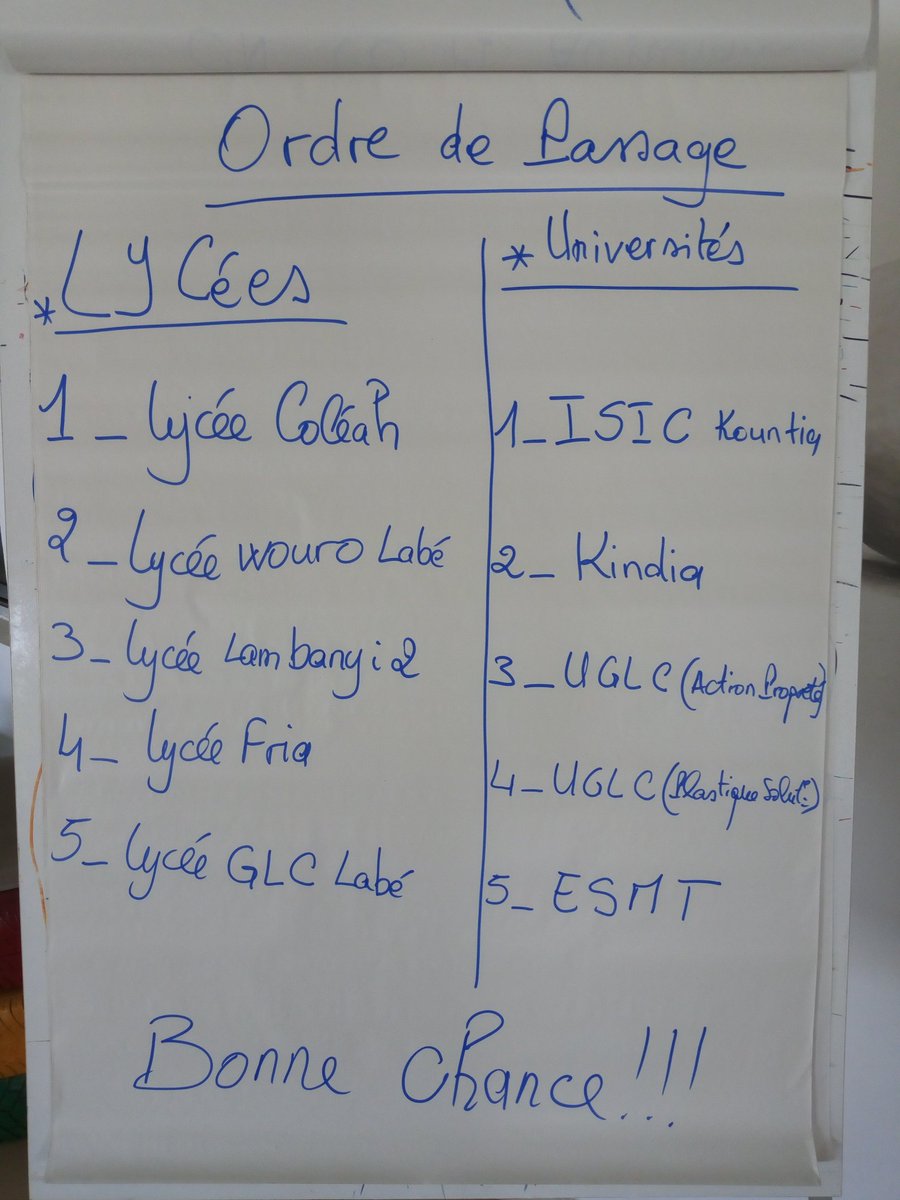 Ordre de Passage
* Lycées
1_ Lycée Coléah
2_ Lycée Wouro Labé
3_ Lycée Lambanyi 2
4_ Lycée Fria
5_ Lycée GLC Labé
* Universités
1_ ISIC Kountia
2_ Kindia
3_ UGLC (Action Propreté)
4_ UGLC (Plastique Solut°)
5_ ESMT
Bonne Chance!!!